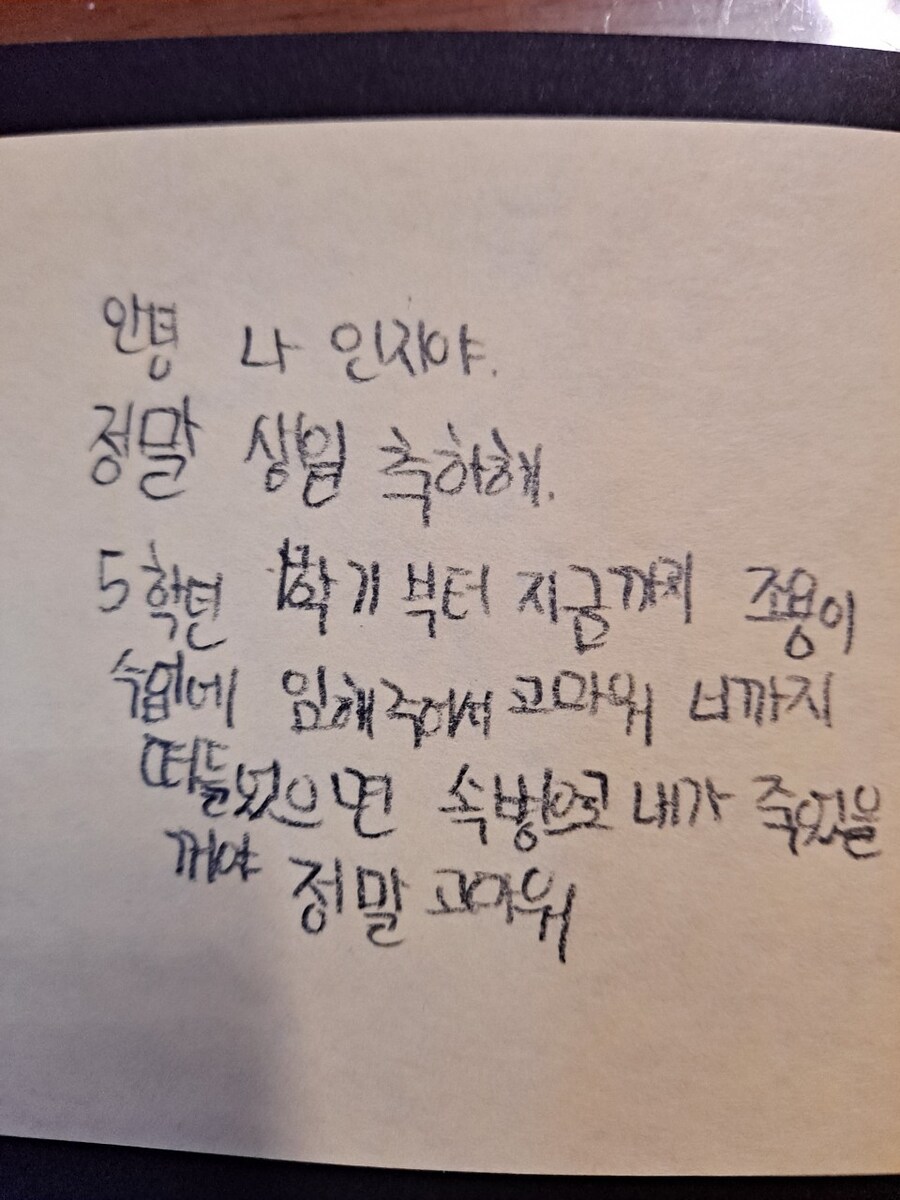 안녕 나 인지야.
정말 생일 축하해.
5학년 1학기부터 지금까지 조용이
수업에 임해주어서 고마워 너까지
떠들었으면 속병으로 내가 죽었을
꺼야 정말 고마워